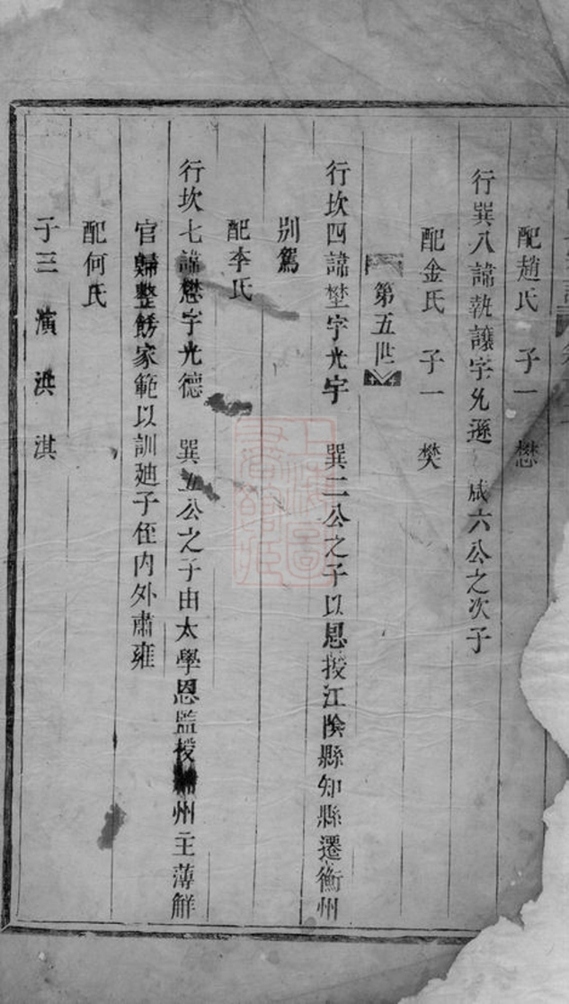 配趙氏　子一　懋
行巽八諱執讓字允遜　咸六公之次子
配金氏　子一　樊
第五世
行坎四諱埜字光宇　巽二公之子以恩授江陰縣知縣遷衡州
別駕
配李氏
行坎七諱懋字光德　巽五公之子由太學恩監授州主薄觧
官歸整飭家範以訓廸子侄內外肅雍
配何氏
子三　演　洪　淇